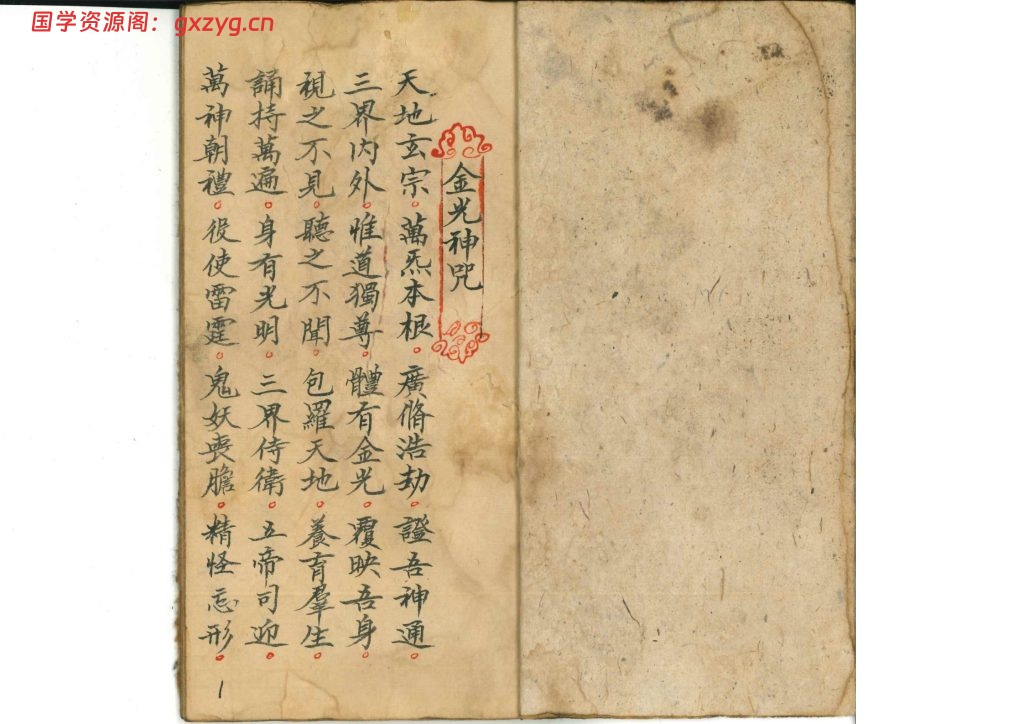 国学资源阁：gxzyg.cn
金光神咒
天地玄宗。萬炁本根。廣脩浩劫。證吾神通。
三界內外。惟道獨尊。體有金光。覆映吾身。
視之不見。聽之不聞。包羅天地。養育羣生。
誦持萬遍。身有光明。三界侍衛。五帝司迎。
萬神朝禮。役使雷霆。鬼妖喪膽。精怪忘形。
1